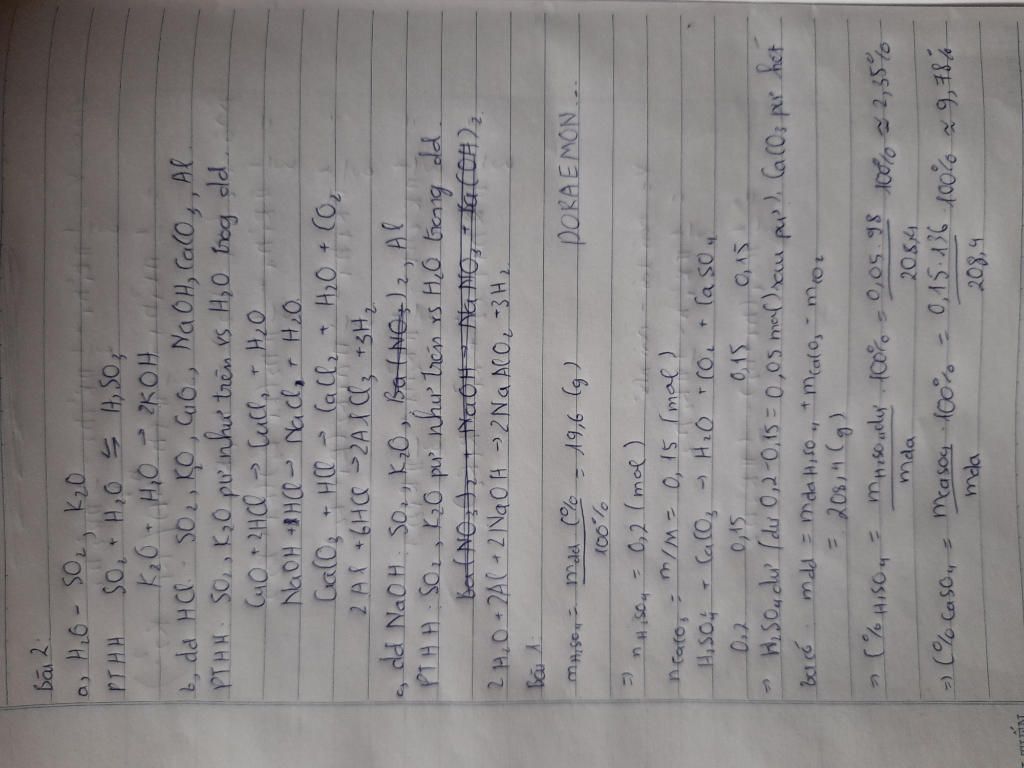 Bài 2:
a, H2O - SO2, K2O
PTHH SO2 + H2O ⇆ H2SO3
K2O + H2O → 2KOH
b, dd HCl: SO2, K2O, CuO, NaOH, CaCO3, Al
PTHH: SO2, K2O pư như trên vs H2O trog dd
CuO + 2HCl → CuCl2 + H2O
NaOH + HCl → NaCl + H2O
CaCO3 + HCl → CaCl2 + H2O + CO2
2Al + 6HCl → 2AlCl3 + 3H2
c, dd NaOH: SO2, K2O, Ba(NO3)2, Al
PTHH: SO2, K2O pư như trên vs H2O trong dd
Ba(NO3)2 + NaOH → NaNO3 + Ba(OH)2
2H2O + 2Al + 2NaOH → 2NaAlO2 + 3H2
Bài 1:
mH2SO4 = mdd.C% / 100% = 19,6 (g) DORAEMON...
=> nH2SO4 = 0,2 (mol)
nCaCO3 = m/M = 0,15 (mol)
H2SO4 + CaCO3 → H2O + CO2 + CaSO4
0,2 0,15 0,15 0,15
=> H2SO4 dư (dư 0,2-0,15 = 0,05 mol) sau pư, CaCO3 pư hết
Ta có: mdd = mdd H2SO4 + mCaCO3 - mCO2
= 208,4 (g)
=> C% H2SO4 = mH2SO4 dư / mdd 100% = 0,05.98 / 208,4 100% ≈ 2,35%
=> C% CaSO4 = mCaSO4 / mdd 100% = 0,15.136 / 208,4 100% ≈ 9,78%